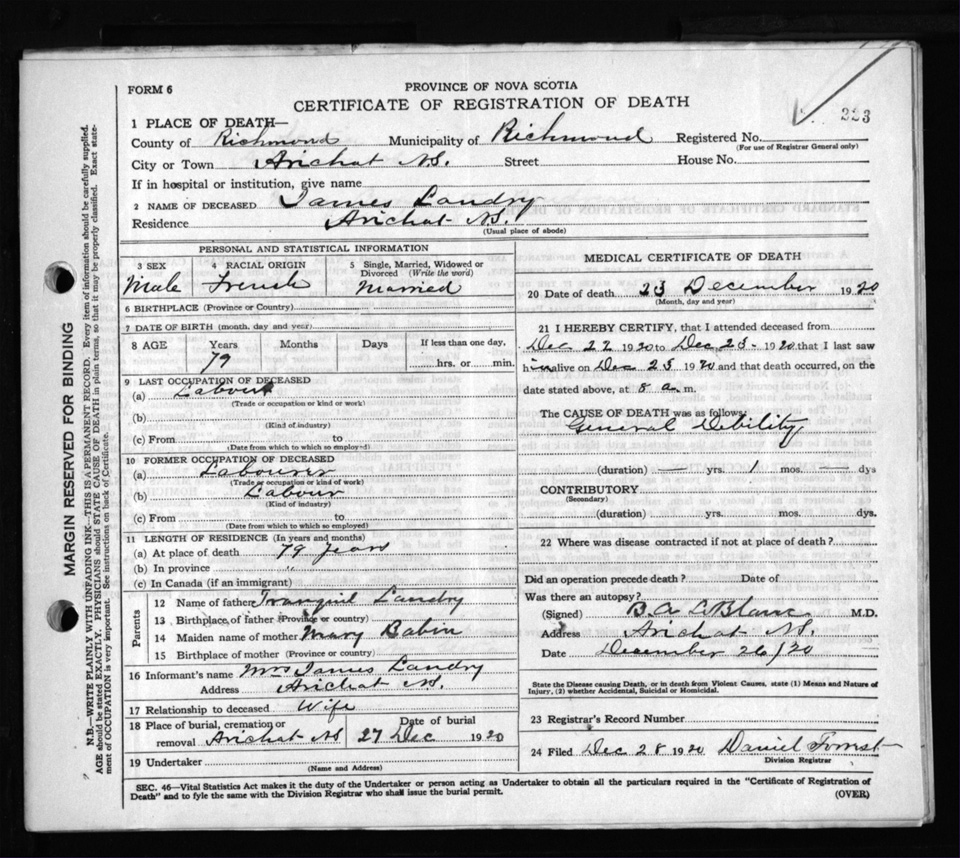 FORM 6
PROVINCE OF NOVA SCOTIA
CERTIFICATE OF REGISTRATION OF DEATH
223
1 PLACE OF DEATH—
County of Richmond Municipality of Richmond Registered No.
(For use of Registrar General only)
City or Town Arichat N.S. Street House No.
If in hospital or institution, give name
2 NAME OF DECEASED James Landry
Residence Arichat N.S.
(Usual place of abode)
PERSONAL AND STATISTICAL INFORMATION
3 SEX 4 RACIAL ORIGIN 5 Single, Married, Widowed or
Divorced (Write the word)
Male French Married
6 BIRTHPLACE (Province or Country)
7 DATE OF BIRTH (month, day and year)
8 AGE Years Months Days If less than one day,
79 hrs. or min.
9 LAST OCCUPATION OF DECEASED
(a) Labour
(Trade or occupation or kind or work)
(b)
(Kind of industry)
(c) From to
(Date from which to which so employed)
10 FORMER OCCUPATION OF DECEASED
(a) Labourer
(Trade or occupation or kind of work)
(b) Labour
(Kind of industry)
(c) From to
(Date from which to which so employed)
11 LENGTH OF RESIDENCE (In years and months)
(a) At place of death 79 years
(b) In province "
(c) In Canada (if an immigrant)
Parents
12 Name of father Tranquil Landry
13 Birthplace of father (Province or country)
14 Maiden name of mother Mary Babin
15 Birthplace of mother (Province or country)
16 Informant's name Mrs James Landry
Address Arichat N.S.
17 Relationship to deceased Wife
18 Place of burial, cremation or Date of burial
removal Arichat NS 27 Dec 1920
19 Undertaker
(Name and Address)
MEDICAL CERTIFICATE OF DEATH
20 Date of death 23 December 1920
(Month, day and year)
21 I HEREBY CERTIFY, that I attended deceased from
Dec 22 1920 to Dec 23 1920 that I last saw
him alive on Dec 23 1920 and that death occurred, on the
date stated above, at 8 a. m.
The CAUSE OF DEATH was as follows:
General Debility
(duration) — yrs. 1 mos. — dys
CONTRIBUTORY
(Secondary)
(duration) yrs. mos. dys.
22 Where was disease contracted if not at place of death?
Did an operation precede death? Date of
Was there an autopsy?
(Signed) B. A. LeBlanc M.D.
Address Arichat N.S.
Date December 26/20
State the Disease causing Death, or in death from Violent Causes, state (1) Means and Nature of
Injury, (2) whether Accidental, Suicidal or Homicidal.
23 Registrar's Record Number
24 Filed Dec 28 1920 Daniel Forrest
Division Registrar
SEC. 46—Vital Statistics Act makes it the duty of the Undertaker or person acting as Undertaker to obtain all the particulars required in the "Certificate of Registration of
Death" and to fyle the same with the Division Registrar who shall issue the burial permit.
(OVER)
MARGIN RESERVED FOR BINDING
N.B.—WRITE PLAINLY WITH UNFADING INK—THIS IS A PERMANENT RECORD. Every item of information should be carefully supplied.
AGE should be stated EXACTLY. PHYSICIANS should STATE CAUSE OF DEATH in plain terms, so that it may be properly classified. Exact state-
ment of OCCUPATION is very important. See instructions on back of Certificate.